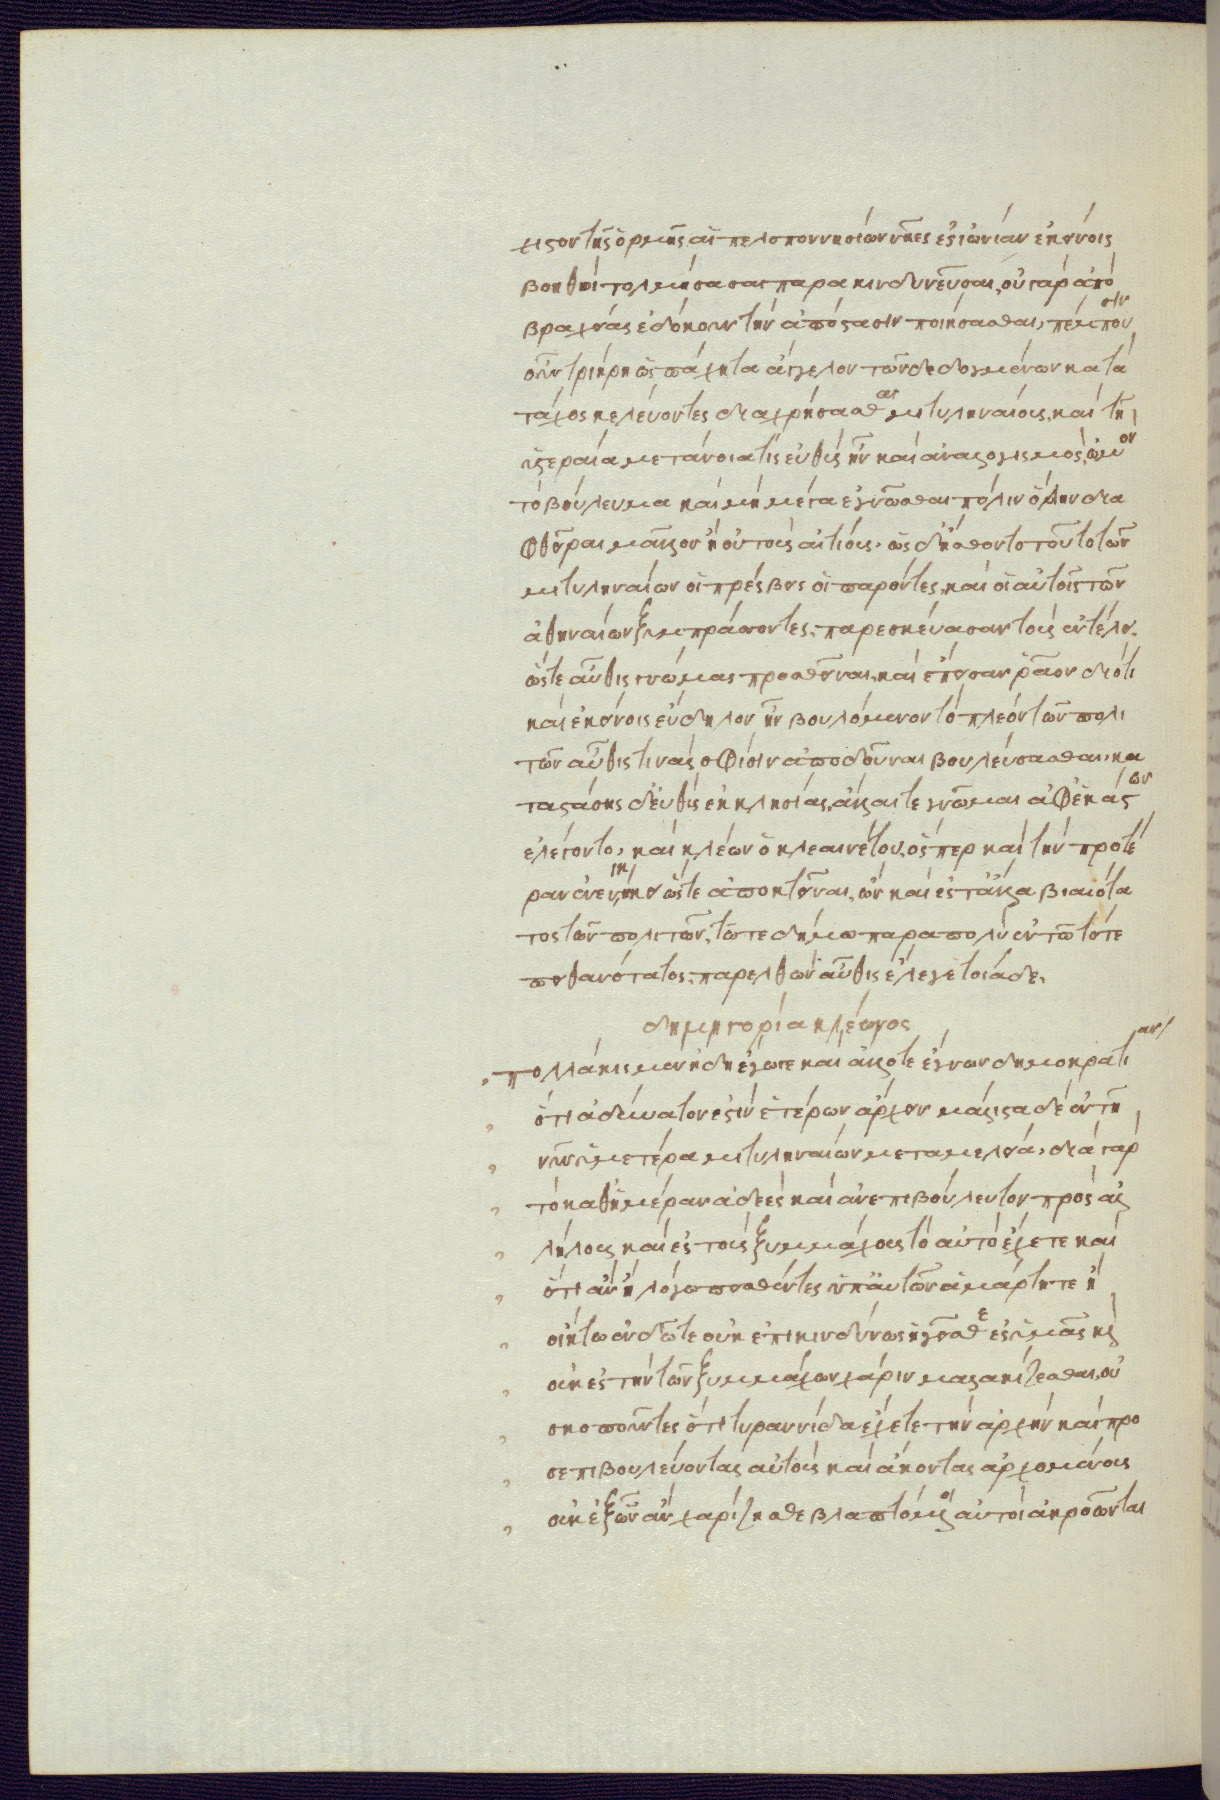 χιστον τῆς ὁρμῆς αἱ πελοποννησίων νῆες ἐς ἰωνίαν ἐκείνοις
βοηθοὶ τολμήσασαι παρακινδυνεῦσαι, οὐ γὰρ ἀπὸ
βραχείας ἐδόκουν τὴν ἀπόστασιν ποιήσασθαι, πέμπουσιν
οὖν τριήρη ὡς πάχητα ἄγγελον τῶν δεδογμένων κατὰ
τάχος κελεύοντες διαχρήσασθαι μιτυληναίους, καὶ τῇ
ὑστεραία μετάνοιά τις εὐθὺς ἦν καὶ ἀναλογισμός, ὠμὸν
τὸ βούλευμα καὶ μὴ μέγα ἐγνῶσθαι πόλιν ὅλην δια
φθεῖραι μᾶλλον ἢ οὐ τοὺς αἰτίους. ὡς δ' ᾔσθοντο τοῦτο τῶν
μιτυληναίων οἱ πρέσβεις οἱ παρόντες, καὶ οἱ αὐτοῖς τῶν
ἀθηναίων ξυμπράσσοντες, παρεσκεύασαν τοὺς ἐν τέλει.
ὥστε αὖθις γνώμας προσθεῖναι, καὶ ἔπεισαν ῥᾶον διότι
καὶ ἐκείνοις εὔδηλον ἦν βουλόμενον τὸ πλέον τῶν πολι
τῶν αὖθίς τινας σφίσιν ἀποδοῦναι βουλεύσασθαι, κα
ταστάσης δ' εὐθὺς ἐκκλησίας, ἄλλαι τε γνῶμαι ἀφ' ἑκάστων
ἐλέγοντο, καὶ κλέων ὁ κλεαινέτου, ὅσπερ καὶ τὴν προτέ
ραν ἐνενικήκει ὥστε ἀποκτεῖναι, ὢν καὶ ἐς τἄλλα βιαιότα
τος τῶν πολιτῶν, τῶ τε δήμω παρὰ πολὺ ἐν τῶ τότε
πιθανώτατος, παρελθὼν αὖθις ἔλεγε τοιάδε.
δημηγορία κλέωνος
πολλάκις μὲν ἤδη ἔγωγε καὶ ἄλλοτε ἔγνων δημοκρατίαν
ὅτι ἀδύνατόν ἐστιν ἑτέρων ἄρχειν μάλιστα δὲ ἐν τῇ
νῦν ὑμετέρα μιτυληναίων μεταμελεία, διὰ γὰρ
τὸ καθ' ἡμέραν ἀδεὲς καὶ ἀνεπιβούλευτον πρὸς ἀλ
λήλους καὶ ἐς τοὺς ξυμμάχους τὸ αὐτὸ ἔχετε καὶ
ὅτι ἂν ἢ λόγω πεισθέντες ὑπ' αὐτῶν ἁμάρτητε ἢ
οἴκτω ἐνδῶτε οὐκ ἐπικινδύνως ἡγεῖσθε ἐς ὑμᾶς καὶ
οὐκ ἐς τὴν τῶν ξυμμάχων χάριν μαλακίζεσθαι, οὐ
σκοποῦντες ὅτι τυραννίδα ἔχετε τὴν ἀρχὴν καὶ προ
σεπιβουλεύοντας αὐτοὺς καὶ ἄκοντας ἀρχομένους
οὐκ ἐξ ὧν ἂν χαρίζησθε βλαπτόμενοι αὐτοὶ ἀκροῶνται